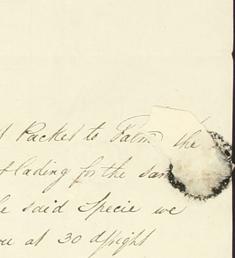 Packet to Falm the
lading for the sam
said Specie we
at 30